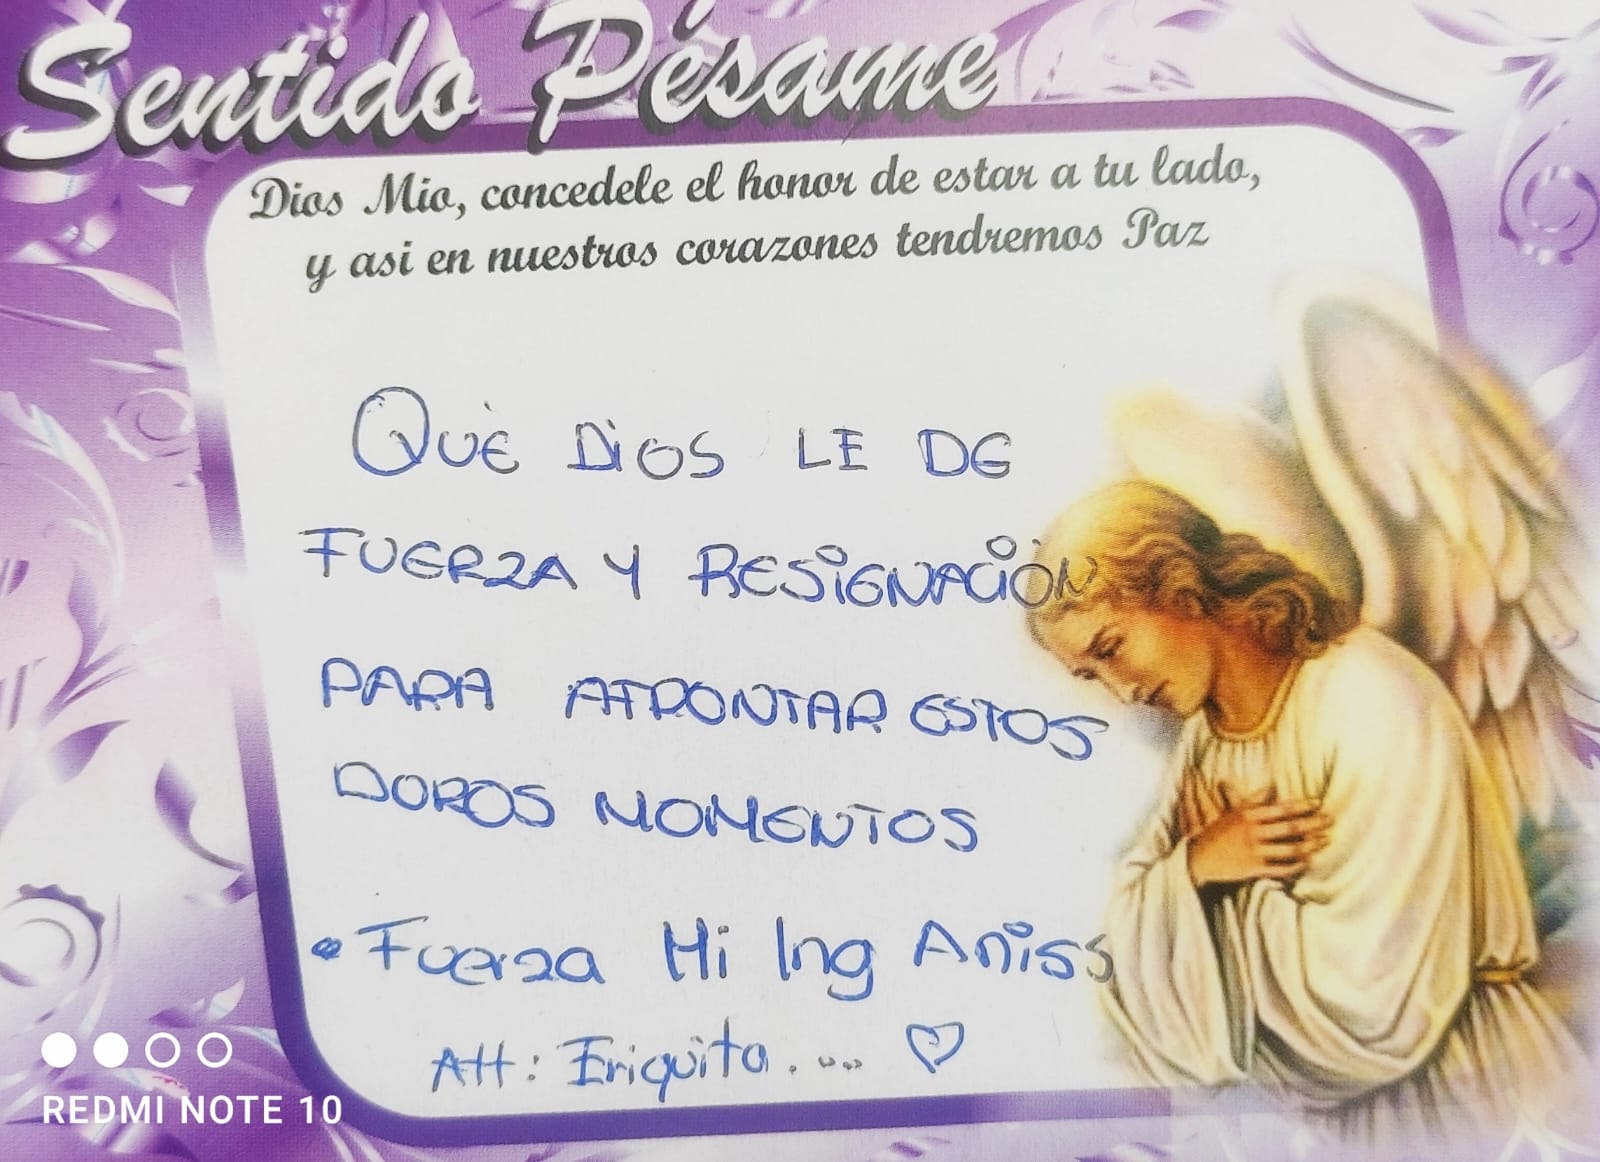 Sentido Pésame
Dios Mio, concedele el honor de estar a tu lado,
y asi en nuestros corazones tendremos Paz
QUE DIOS LE DE
FUERZA Y RESIGNACIÓN
PARA AFRONTAR ESTOS
DUROS MOMENTOS
Fuerza Mi Ing Aniss
Att: Eriquita.... ♡
REDMI NOTE 10